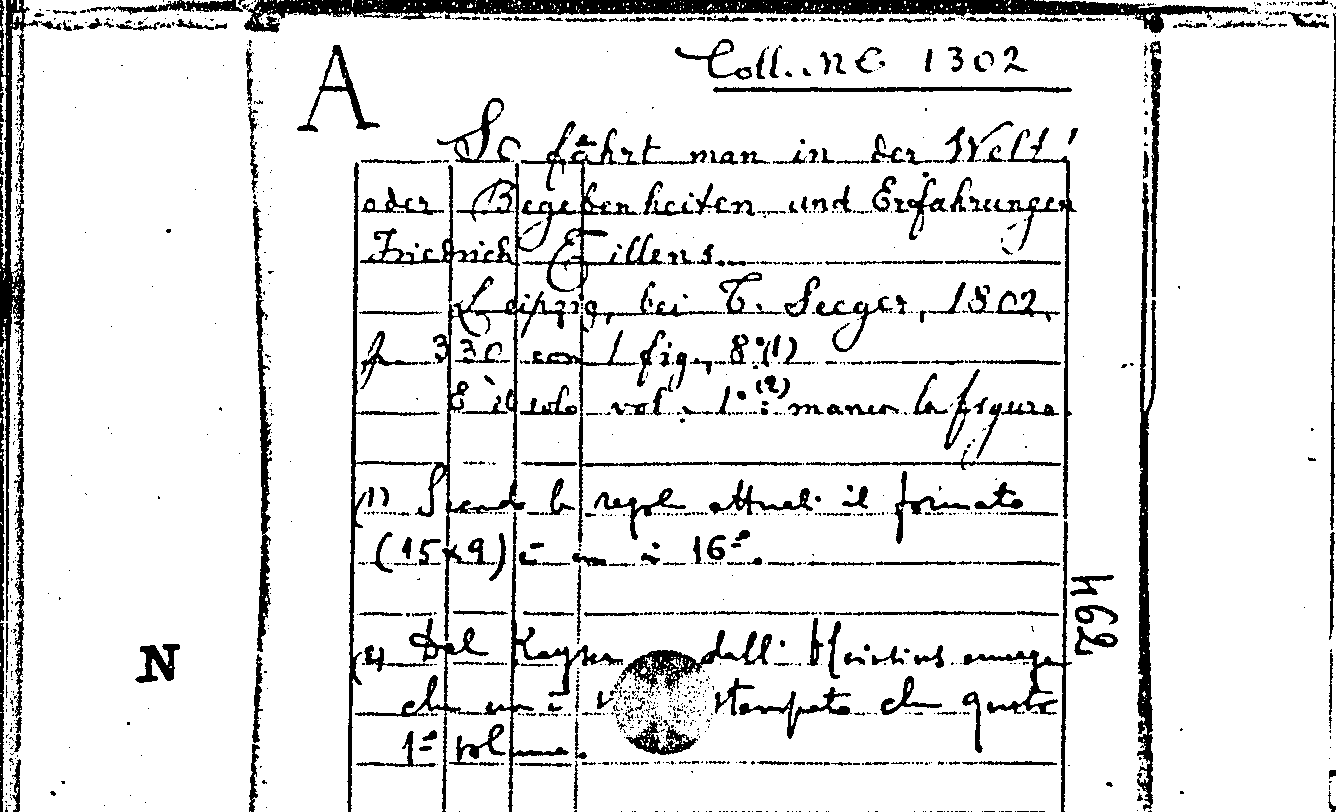 A
Coll. NC 1302
So fährt man in der Welt!
oder Begebenheiten und Erfahrungen
Friedrich Tillens...
Leipzig, bei T. Seeger, 1802,
p. 330 con 1 fig., 8°(1)
È il solo vol. 1°;(2) manca la figura.
(1) Secondo le regole attuali il formato
(15x9) è un i 16°.
462
(2) Dal Kayser dall' Heinsius emerge
N
che non è stampato che questo
1° volume.